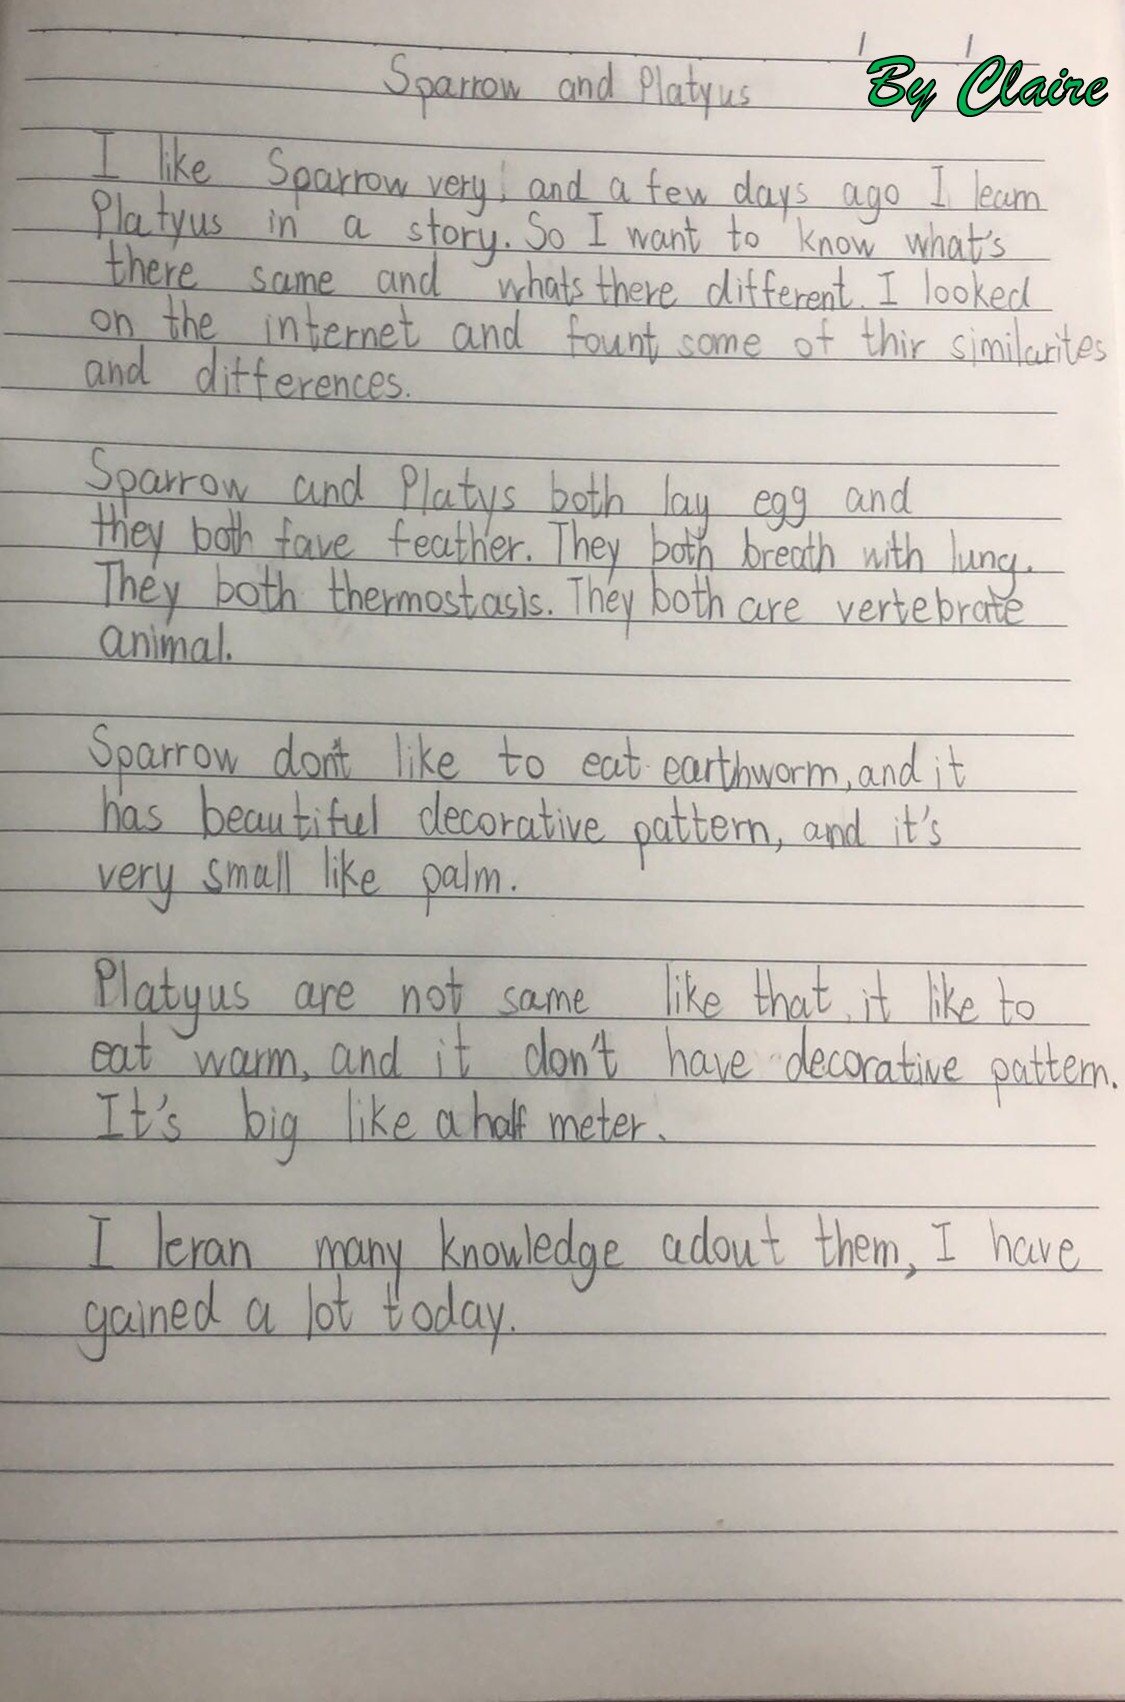 Sparrow and Platyus
By Claire
I like Sparrow very, and a few days ago I learn
Platyus in a story. So I want to know what's
there same and whats there different. I looked
on the internet and fount some of thir similarites
and differences.
Sparrow and Platys both lay egg and
they both fave feather. They both breath with lung.
They both thermostasis. They both are vertebrate
animal.
Sparrow don't like to eat earthworm, and it
has beautiful decorative pattern, and it's
very small like palm.
Platyus are not same like that, it like to
eat warm, and it don't have decorative pattern.
It's big like a half meter.
I leran many knowledge adout them, I have
gained a lot today.